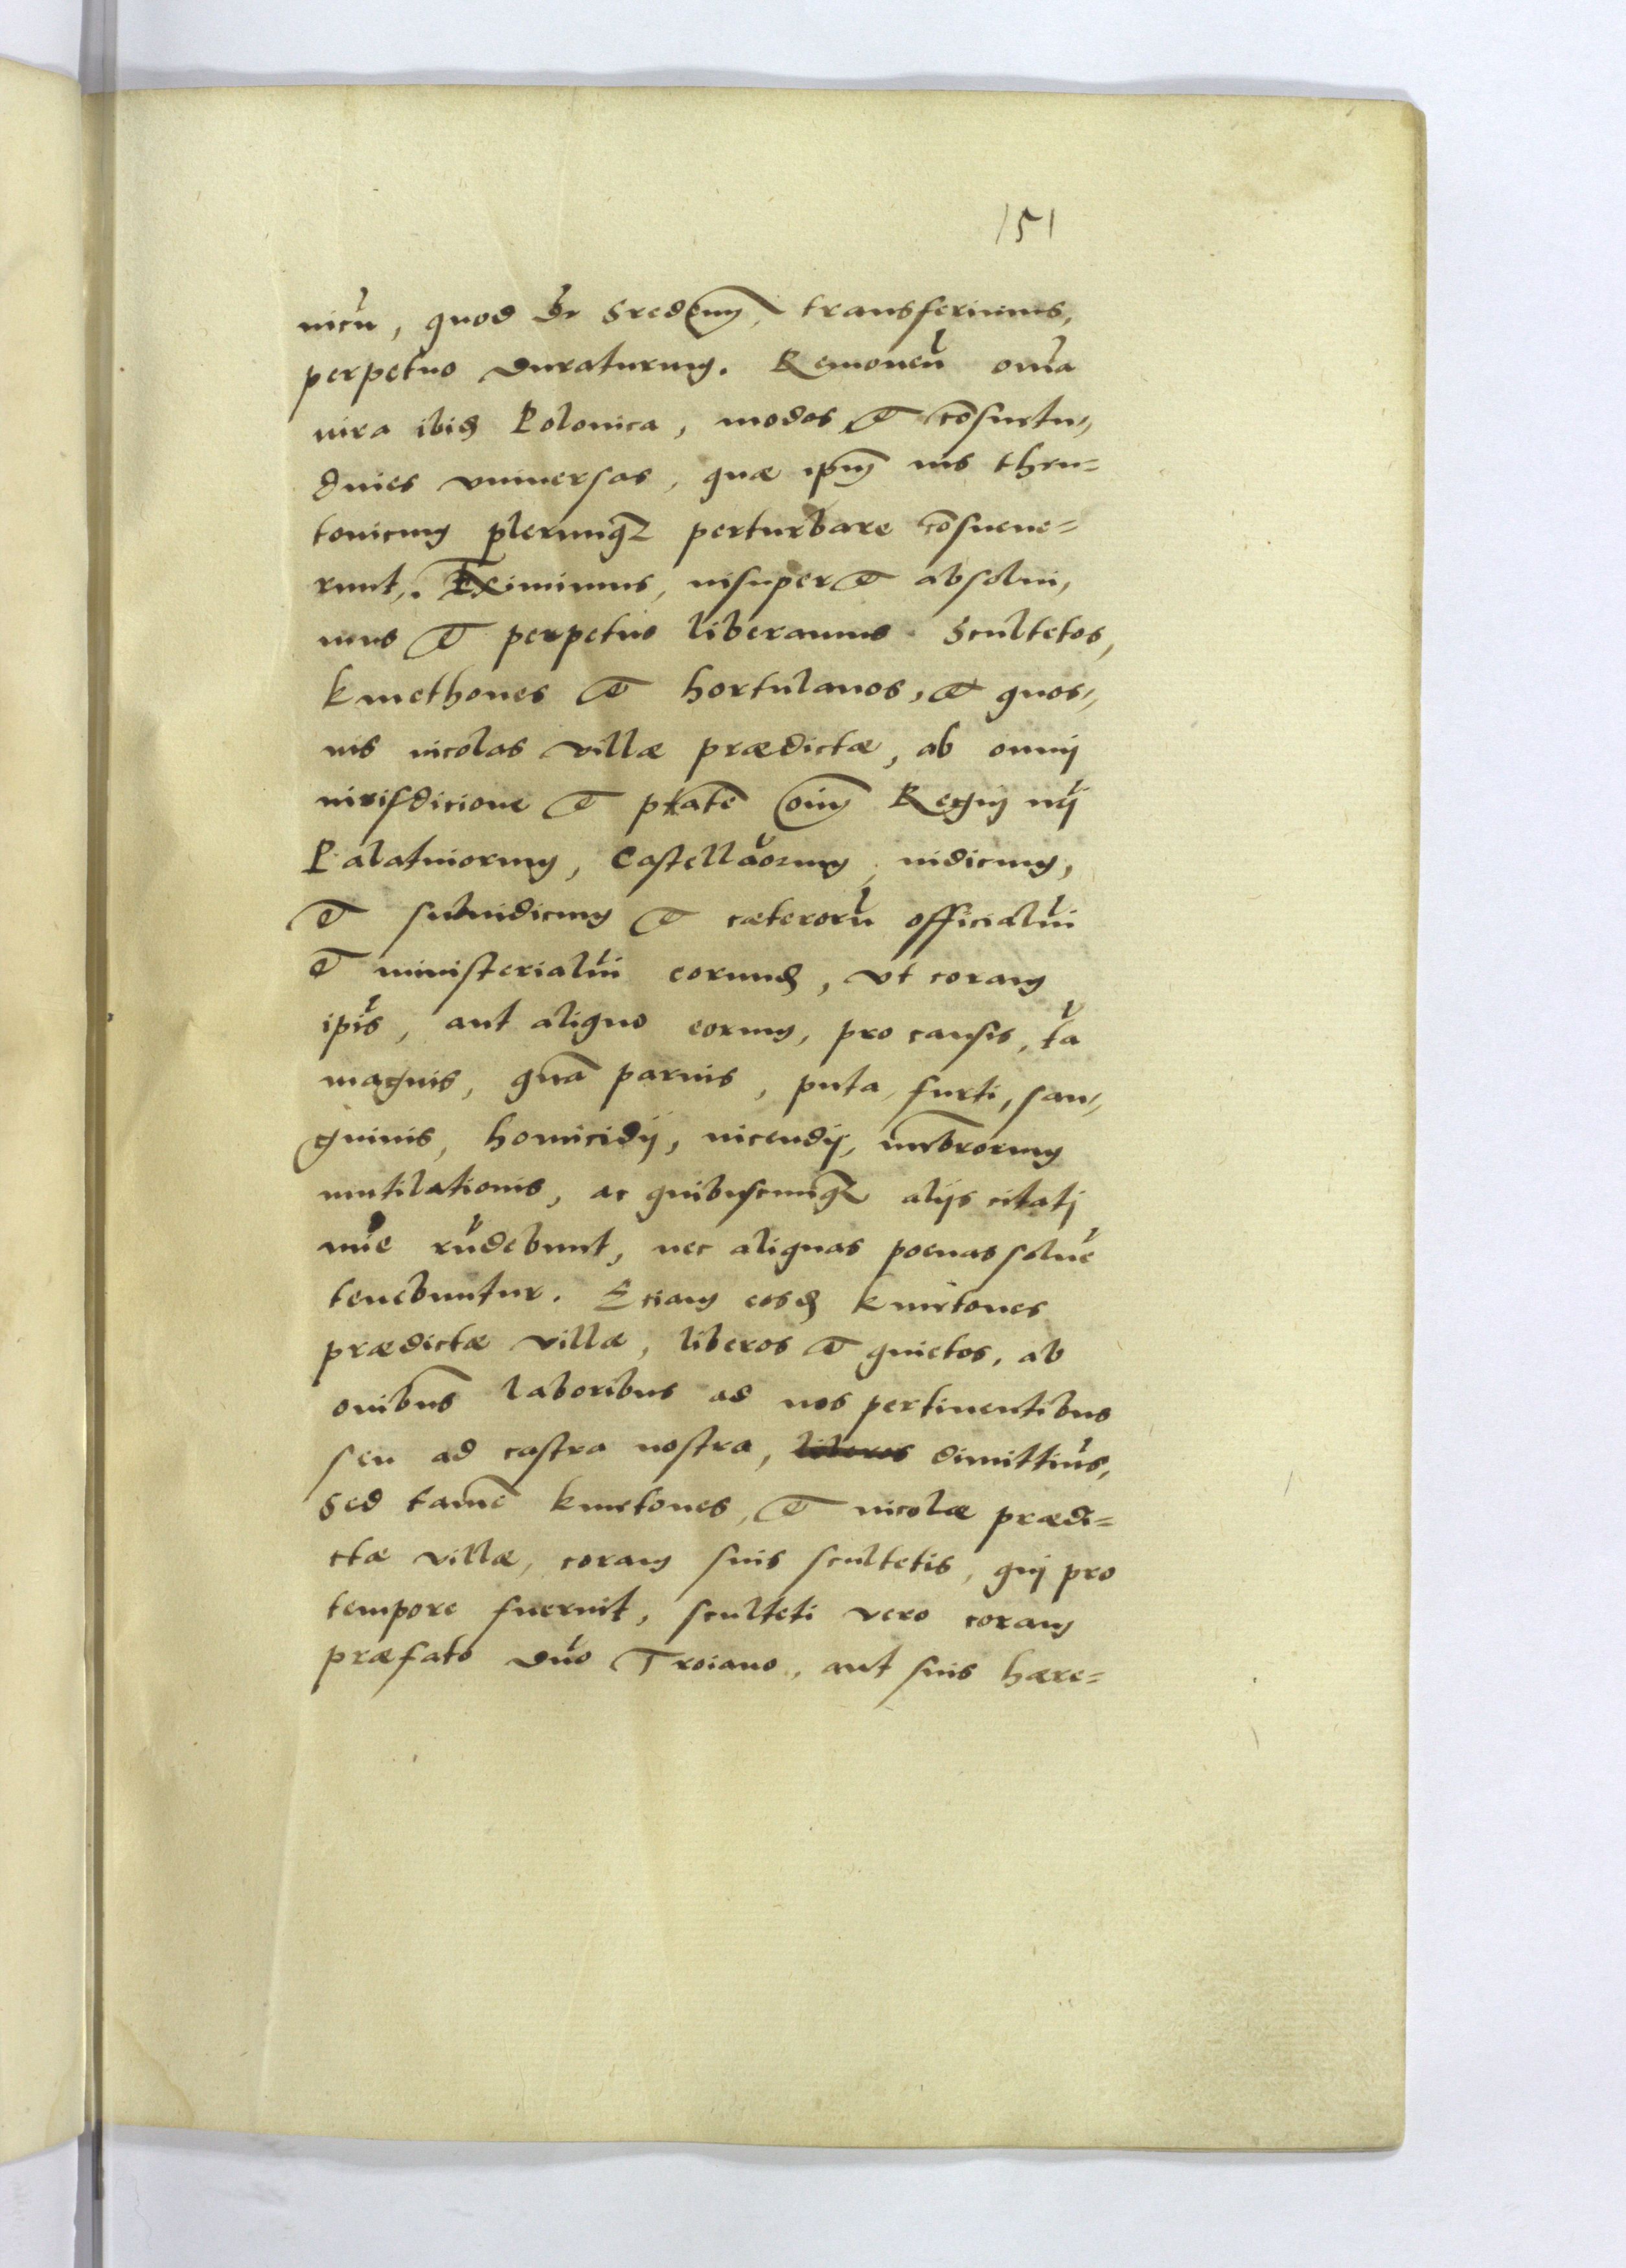 151
nicũ, quod dr Sredense, transferimus,
perpetuo duraturum. Remoueñ oĩa
iura ibid Polonica, modos et cõsuetu„
dines vniuersas, quæ ipm̃ ius theu=
tonicum plerumqz perturbare cõsueue=
runt. Eximimus, insuper et absolui„
mus et perpetuo liberamus Scultetos,
kmethones et hortulanos, et quos„
uis incolas villæ prædictæ, ab omnij
iurisdicione et ptatẽ oĩm Regni nrĩ
Palatinorum, Castellãorum, iudicum,
et subiudicum et cæterorũ officialiũ
et ministerialiũ eorund, vt coram
ipĩs, aut aliquo eorum, pro causis, tã
magnis, quã paruis, puta, furti, san„
guinis, homicidij, incendij, mẽbrorum
mutilationis, ac quibuscumqz alijs citatj
mĩe rñdebunt, nec aliquas poenas soluẽ
tenebuntur. Etiam eosd kmetones
prædictæ villæ, liberos et quietos, ab
oñibus laboribus ad nos pertinentibus
seu ad castra nostra, liberos dimittim̃s,
Sed tamẽ kmetones, et incolæ prædi=
ctæ villæ, coram suis scultetis, quj pro
tempore fuerint, sculteti vero coram
præfato dño Troiano, aut suis hære=